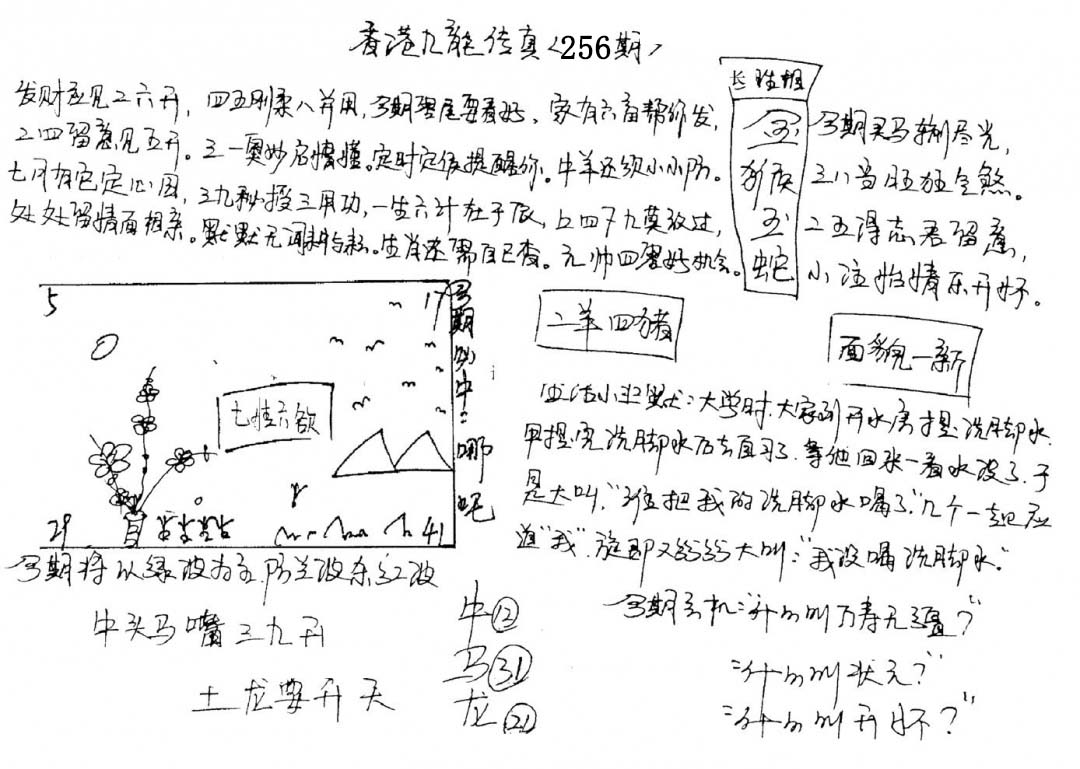 香港九龙传真<256期>
发财应见二六开，四五刚柔八并用，今期望尾要看好，家有六畜帮你发，
二四留意见五开。三一奥妙启情懂。定时定夜提醒你。牛羊还须小小防。
七月有它定心因，三九秘授三用功，一生六计在于辰，上四下九莫放过，
处处留情面相亲。默默无闻耕与耘。生肖还需自已查。元帅四零好机会。
长胜组
金
猴
玉
蛇
今期灵马转尽光，
三八当旺狂全煞。
二五得志君留意，
小注怡情乐开怀。
5
17
七情六欲
29
41
今期必中：哪吒
二羊四猪
面貌一新
生活小幽默：大学时大家到开水房提洗脚水
甲提完洗脚水后去自习了.等他回来一看水没了.于
是大叫："谁把我的洗脚水喝了"几个一起应
道"我".旋即又纷纷大叫："我没喝洗脚水."
今期将以绿波为主.防兰波杀红波
牛头马嘴三九开
土龙要升天
牛⑬
马㉛
龙㉑
今期玄机："什么叫万寿无疆？"
"什么叫状元？"
"什么叫开怀？"